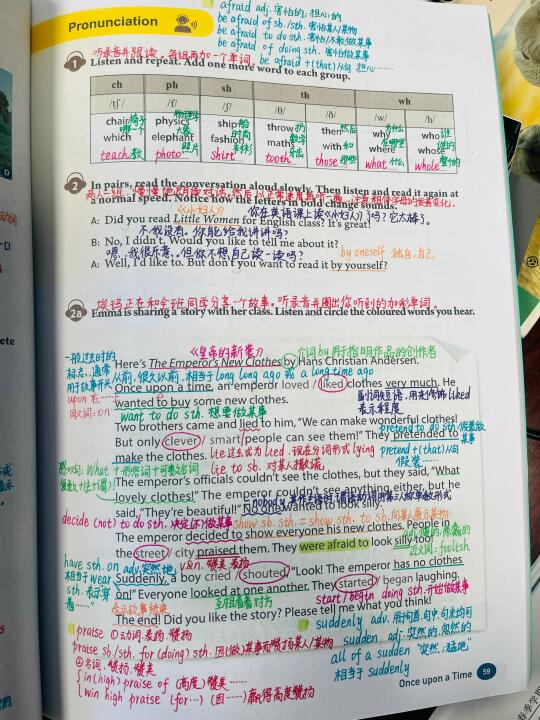 afraid adj. 害怕的; 担心的
be afraid of sb./sth. 害怕某人/某物
be afraid to do sth. 害怕/不敢做某事
be afraid of doing sth. 害怕做某事
be afraid +(that)从句 担心……
Pronunciation
听录音并跟读。每组再加一个单词。
1 Listen and repeat. Add one more word to each group.
ch ph sh th wh
/tʃ/ /f/ /ʃ/ /θ/ /ð/ /w/ /h/
chair椅子 physics物理学 ship船 throw扔 then然后 why为什么 who谁
which哪一个 elephant大象 fashion时尚 maths数学 with和 where在哪里 whose谁的
teach教 photo照片 shirt tooth牙齿 those那些 what什么 whole整个的
2 In pairs, read the conversation aloud slowly. Then listen and read it again at
a normal speed. Notice how the letters in bold change sounds.
《小妇人》 你在英语课上读《小妇人》了吗?它太棒了。
A: Did you read Little Women for English class? It's great!
不,我没有。你能给我讲讲吗?
B: No, I didn't. Would you like to tell me about it?
嗯,我很乐意。但你不想自己读一读吗? by oneself 独自,自己
A: Well, I'd like to. But don't you want to read it by yourself?
埃玛正在和全班同学分享一个故事。听录音并圈出你听到的加彩单词。
2a Emma is sharing a story with her class. Listen and circle the coloured words you hear.
一般过去时的
标志,通常
用于故事开头
《皇帝的新装》 介词by用于指明作品的创作者
Here's The Emperor's New Clothes by Hans Christian Andersen.
从前,很久以前,相当于long long ago 或 a long time ago
Once upon a time, an emperor loved / liked clothes very much. He
upon 在……
同义词: on
wanted to buy some new clothes.
副词短语,用来修饰liked
表示程度
want to do sth. 想要做某事
Two brothers came and lied to him, "We can make wonderful clothes!
pretend to do sth. 假装做某事
But only clever / smart people can see them!" They pretended to
make the clothes. lie过去式为lied 现在分词形式lying
pretend +(that)从句
假装……
lie to sb. 对某人撒谎
The emperor's officials couldn't see the clothes, but they said, "What
lovely clothes!" The emperor couldn't see anything either, but he
said, "They're beautiful!" No one wanted to look silly.
decide (not) to do sth. 决定(不)做某事 show sb. sth. = show sth. to sb. 向某人展示某物
The emperor decided to show everyone his new clothes. People in
the street / city praised them. They were afraid to look silly too!
近义词: foolish
have sth. on
相当于wear
adv. 突然地 v.&n. 赞美,表扬
Suddenly, a boy cried / shouted, "Look! The emperor has no clothes
on!" Everyone looked at one another. They started / began laughing.
表示故事结束 互相看着对方 start/begin doing sth. 开始做某事
The end! Did you like the story? Please tell me what you think!
praise ①动词.表扬,赞扬
praise sb./sth. for (doing) sth. 因(做)某事而赞扬某人/某物
②名词.赞扬,赞美
in (high) praise of (高度)赞美……
win high praise (for…) (因……)赢得高度赞扬
suddenly adv. 用于句首,句中,句末均可
sudden adj. 突然的,忽然的
all of a sudden "突然,猛地"
相当于 suddenly
Once upon a Time 59